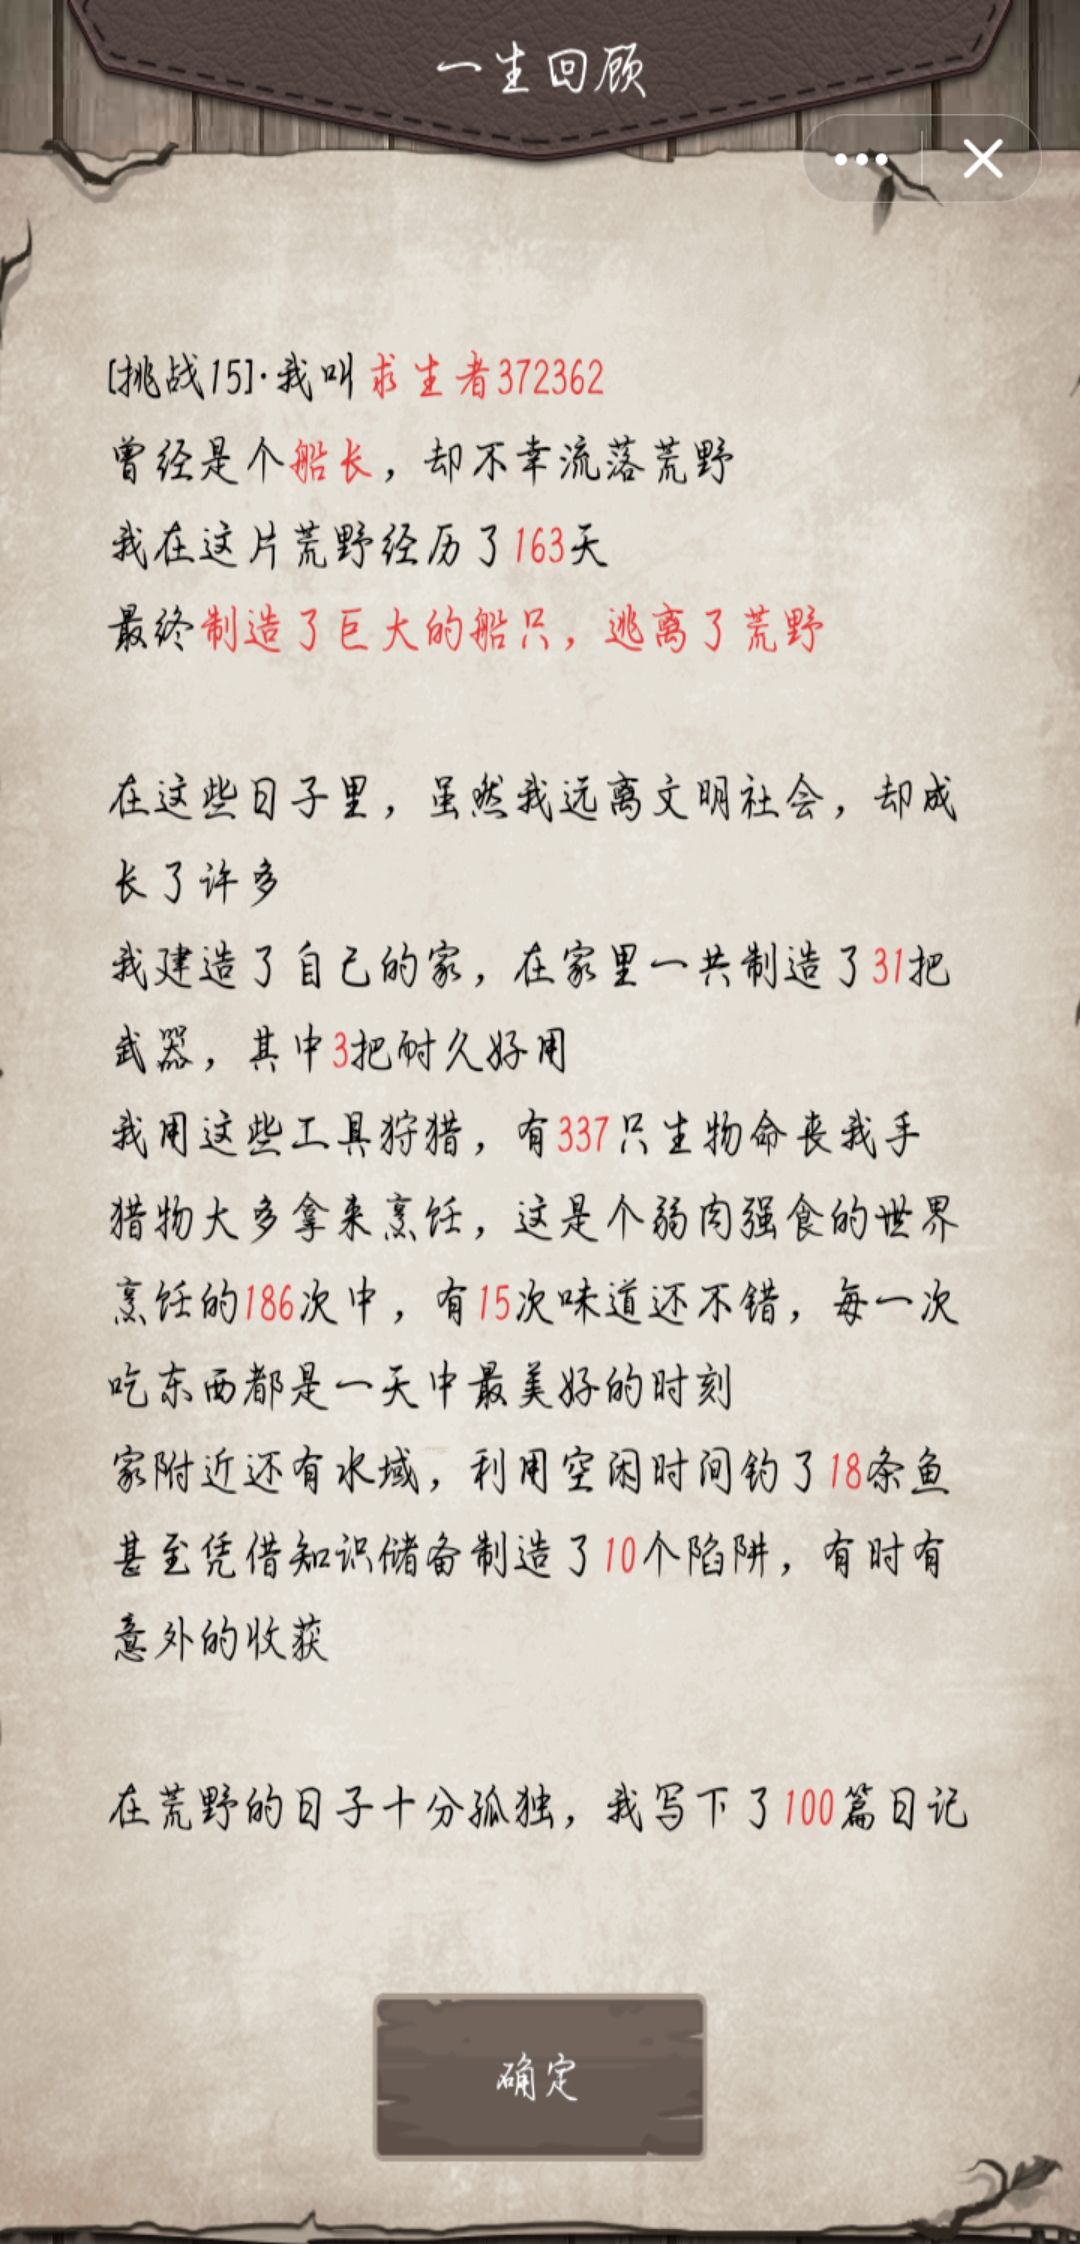 一生回顾
[挑战15]·我叫求生者372362
曾经是个船长，却不幸流落荒野
我在这片荒野经历了163天
最终制造了巨大的船只，逃离了荒野
在这些日子里，虽然我远离文明社会，却成
长了许多
我建造了自己的家，在家里一共制造了31把
武器，其中3把耐久好用
我用这些工具狩猎，有337只生物命丧我手
猎物大多拿来烹饪，这是个弱肉强食的世界
烹饪的186次中，有15次味道还不错，每一次
吃东西都是一天中最美好的时刻
家附近还有水域，利用空闲时间钓了18条鱼
甚至凭借知识储备制造了10个陷阱，有时有
意外的收获
在荒野的日子十分孤独，我写下了100篇日记
确定